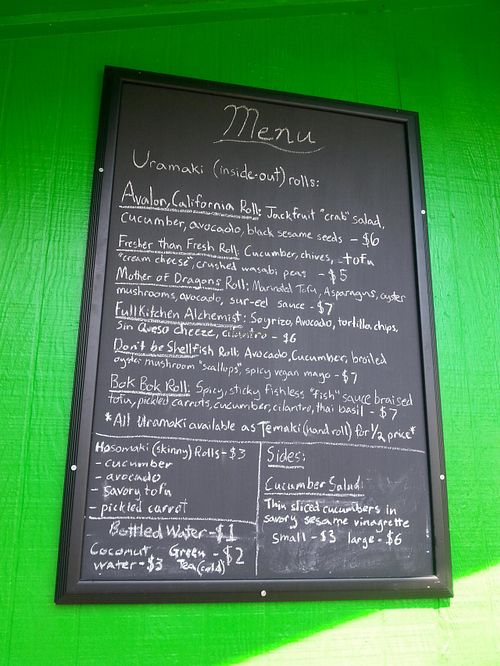 Menu
Uramaki (inside-out) rolls:
Avalon, California Roll: Jackfruit "crab" salad,
cucumber, avocado, black sesame seeds - $6
Fresher than Fresh Roll: Cucumber, chives, tofu
"cream cheese", crushed wasabi peas - $5
Mother of Dragons Roll: Marinated Tofu, Asparagus, oyster
mushrooms, avocado, sur-eel sauce - $7
Full Kitchen Alchemist: Soyrizo, Avocado, tortilla chips,
Sin Queso Cheeze, cilantro - $6
Don't be Shellfish Roll: Avocado, Cucumber, broiled
oyster mushroom "scallops", spicy vegan mayo - $7
Bok Bok Roll: Spicy, sticky fishless "fish" sauce braised
tofu, pickled carrots, cucumber, cilantro, thai basil - $7
*All Uramaki available as Temaki (hand roll) for 1/2 price*
Hosomaki (skinny) Rolls - $3
- cucumber
- avocado
- savory tofu
- pickled carrot
Bottled Water - $1
Coconut water - $3
Green Tea (cold) - $2
Sides:
Cucumber Salad:
Thin sliced cucumbers in
savory sesame vinagrette
small - $3 large - $6